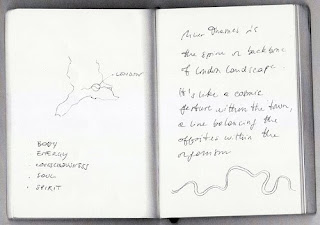 . LONDON
BODY
ENERGY
. CONSCIOUSNESS
. SOUL
. SPIRIT
River Thames is
the spine or backbone
of London landscape.
It's like a cosmic
gesture within the town,
a line balancing the
opposites within the
organism